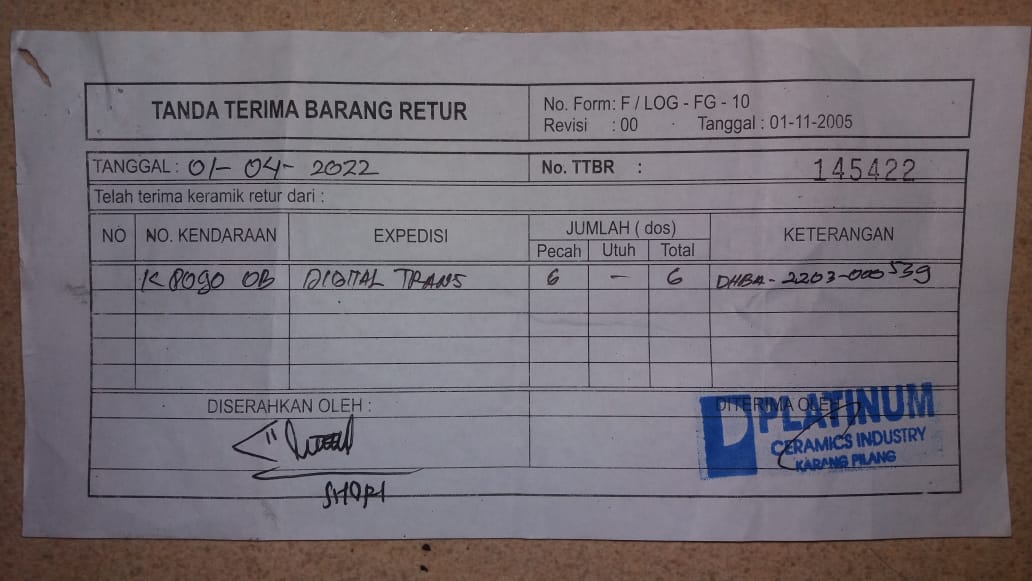 TANDA TERIMA BARANG RETUR
No. Form: F / LOG - FG - 10
Revisi : 00 Tanggal : 01-11-2005
TANGGAL : 01-04-2022 No. TTBR : 145422
Telah terima keramik retur dari :
NO NO. KENDARAAN EXPEDISI JUMLAH ( dos) KETERANGAN
Pecah Utuh Total
K 8090 OB DIGITAL TRANS 6 - 6 DHBA-2203-000539
DISERAHKAN OLEH : DITERIMA OLEH
PLATINUM
CERAMICS INDUSTRY
KARANG PILANG